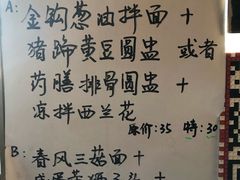 A: 金钩葱油拌面 +
猪蹄黄豆圆盅 或者
药膳排骨圆盅 +
凉拌西兰花
原价:35 特:30
B: 春风三菇面 +